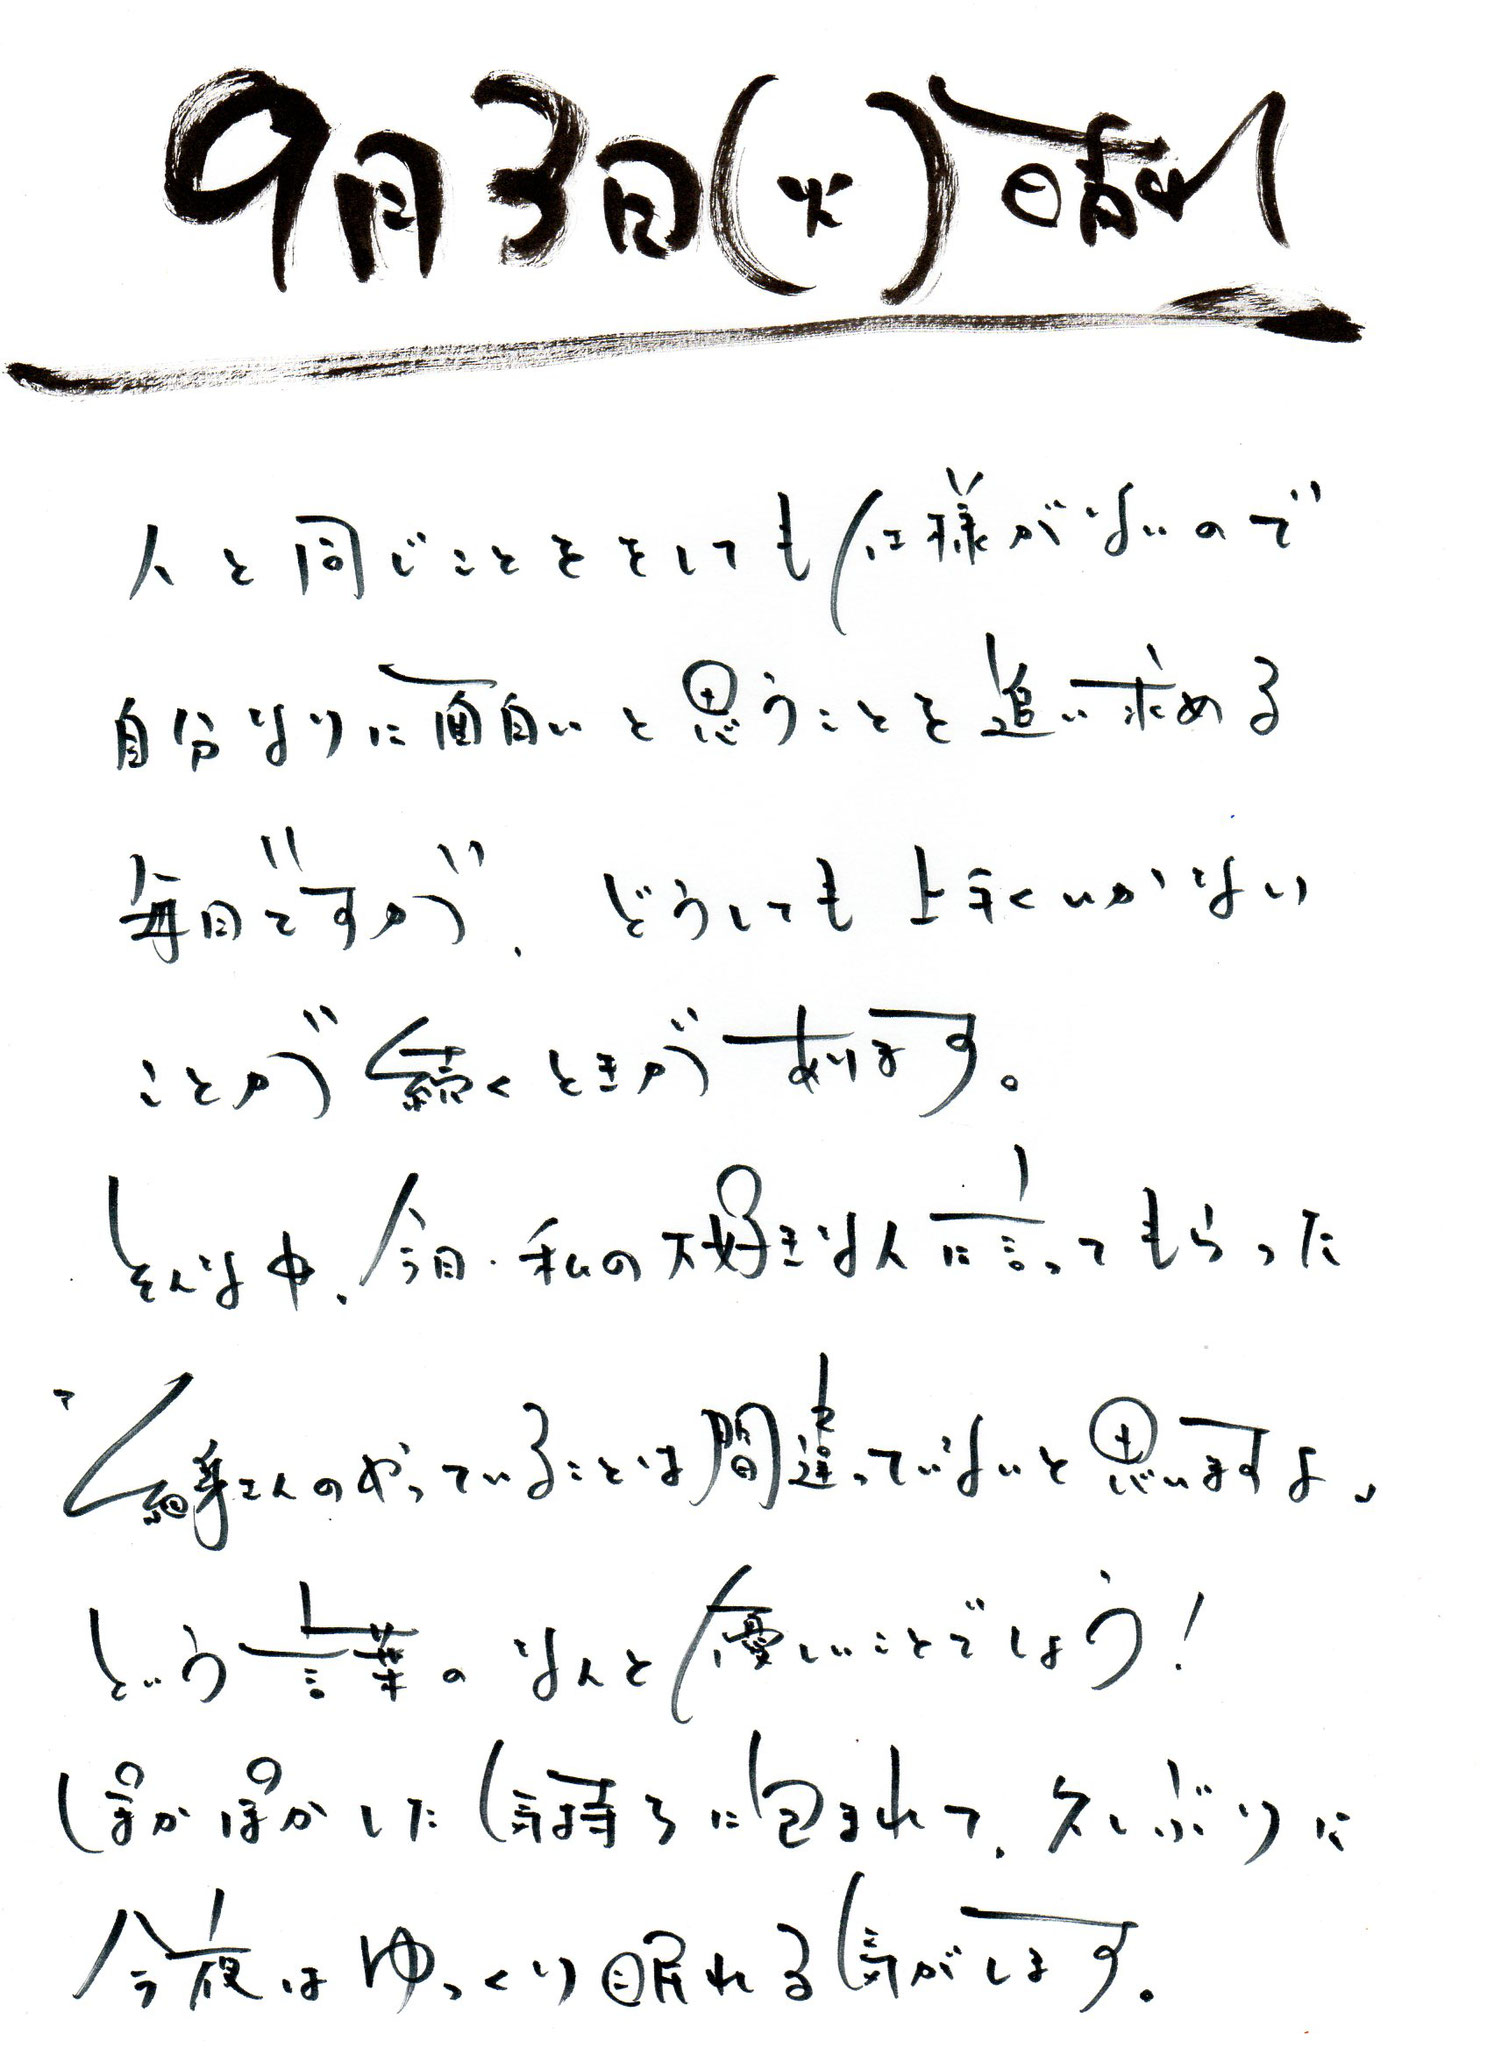 9月3日(火)晴れ
人と同じことををしても仕様がないので
自分なりに面白いと思うことを追い求める
毎日ですが、どうしても上手くいかない
ことが続くときがあります。
そんな中、今日、私の大好きな人に言ってもらった
さんのやっていることは間違っていないと思いますよ」
という言葉のなんと優しいことでしょう！
ぽかぽかした気持ちに包まれて、久しぶりに
今夜はゆっくり眠れる気がします。